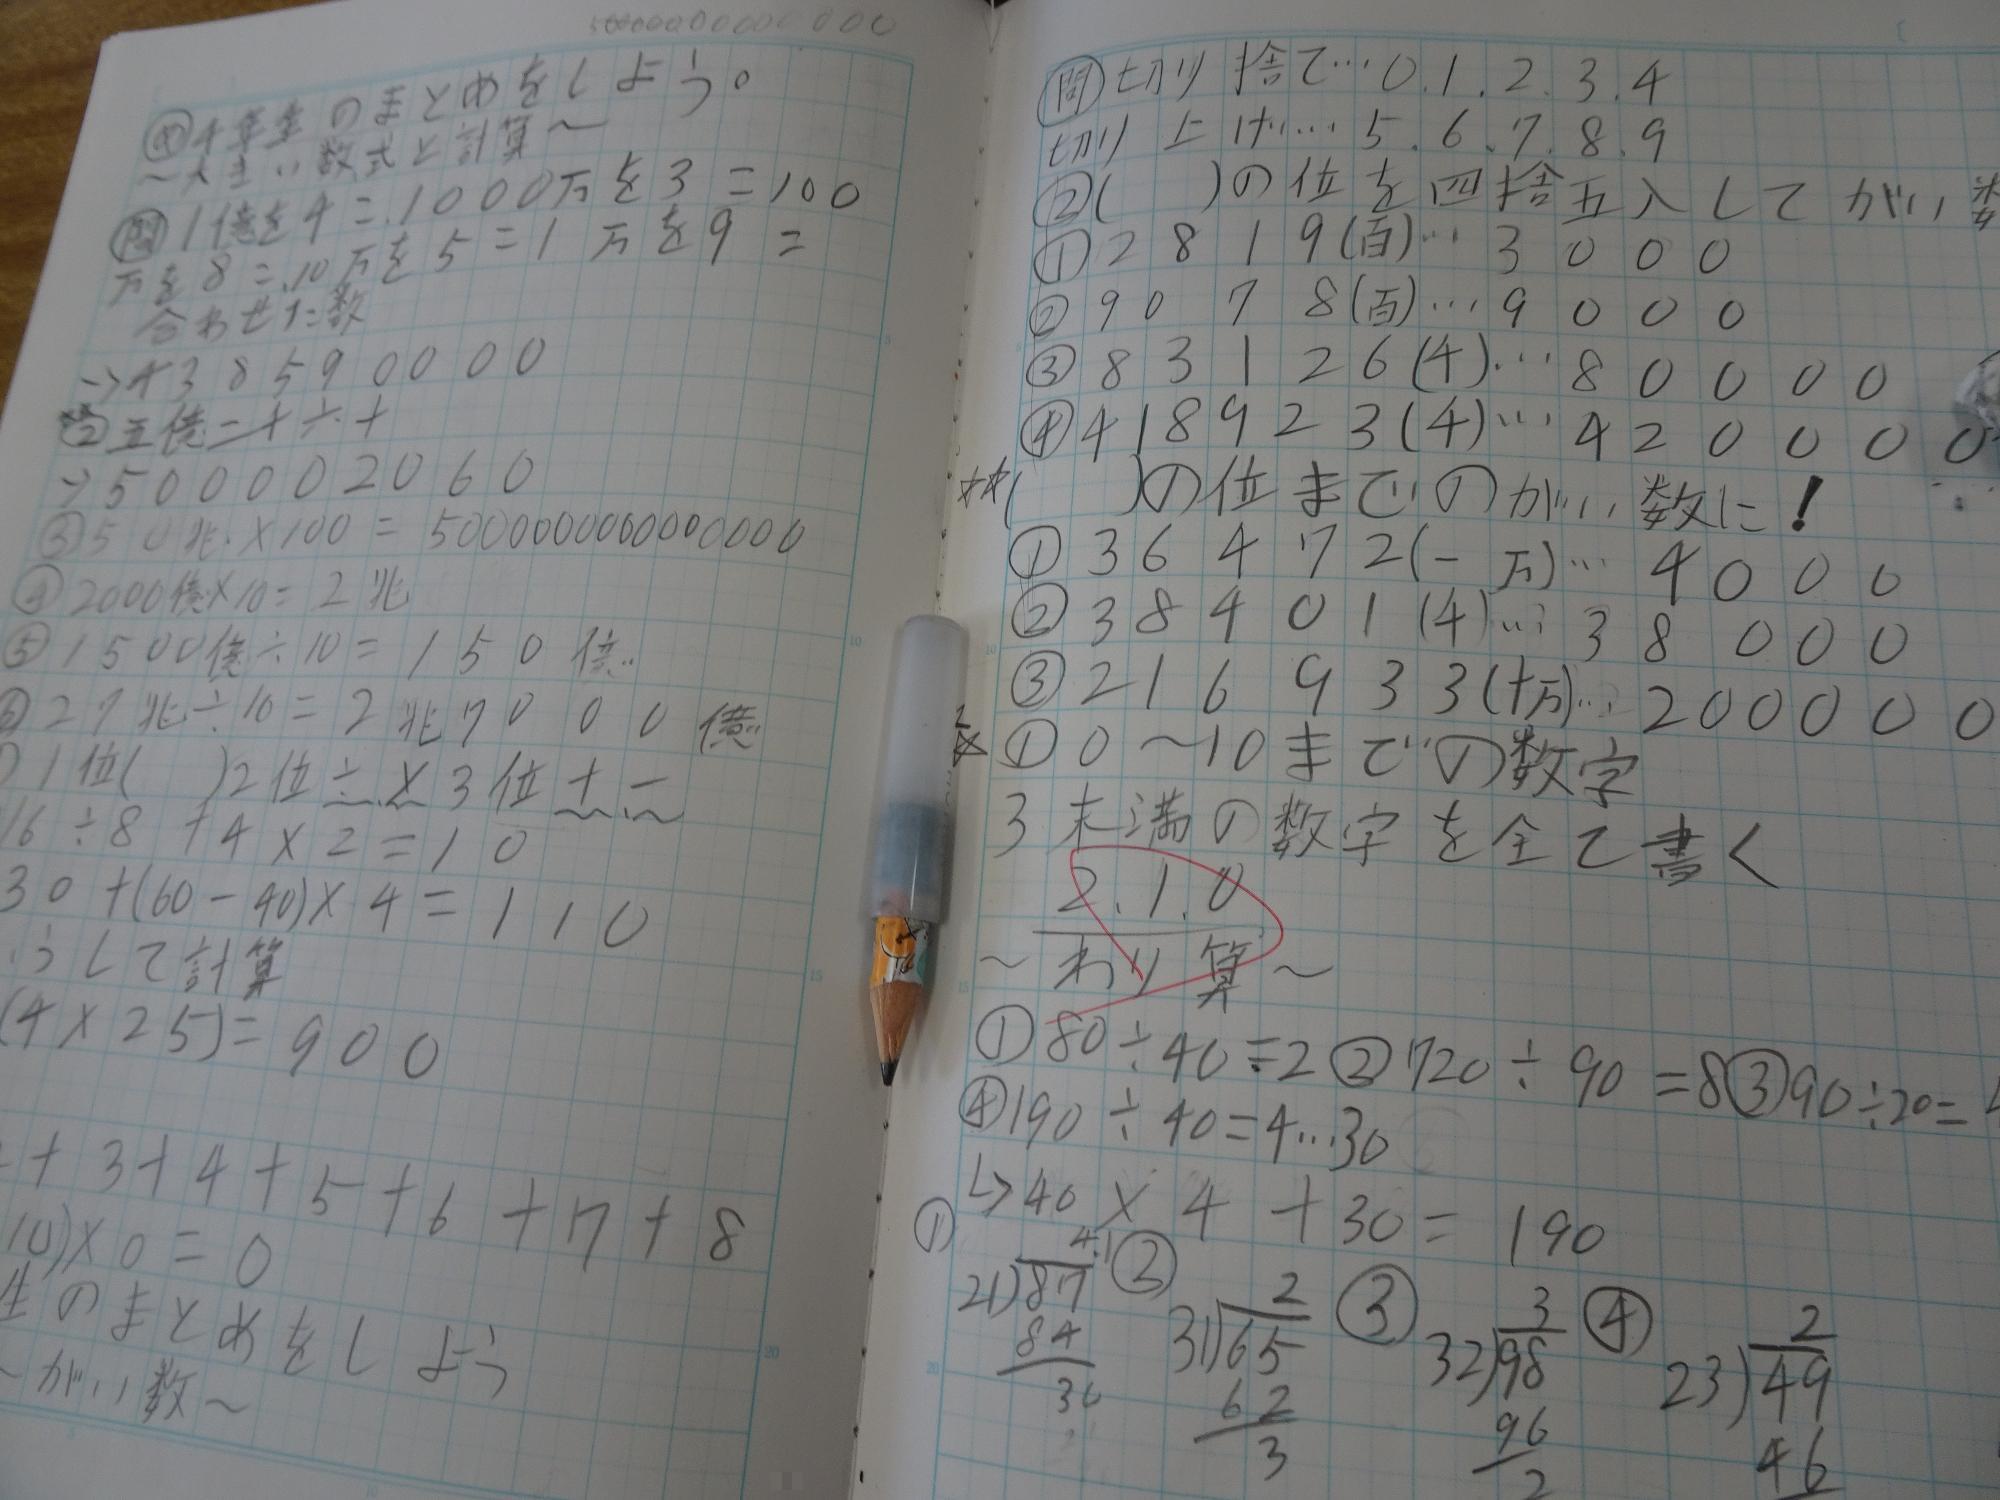 5000000000000
め 4年生のまとめをしよう。
～大きい数式と計算～
問 1億を4=.1000万を3=100
万を8=.10万を5=1万を9=
合わせた数
→438590000
② 五億二千六十
→500002060
③50兆×100=5000000000000000
④2000億×10=2兆
⑤1500億÷10=150億
⑥27兆÷10=2兆7000億
1位( )2位÷×3位+-
16÷8+4×2=10
30+(60-40)×4=110
うして計算
(4×25)=900
+3+4+5+6+7+8
10)×0=0
生のまとめをしよう
～がい数～
問 切り捨て…0.1.2.3.4
切り上げ…5.6.7.8.9
②( )の位を四捨五入してがい数
①2819(百)…3000
②9078(百)…9000
③83126(4)…80000
④418923(4)…420000
( )の位までのがい数に!
①36472(一万)…4000
②38401(4)…38000
③216933(十万)…200000
①0～10までの数字
3未満の数字を全て書く
2.1.0
～わり算～
①80÷40=2②720÷90=8③90÷20=
④190÷40=4…30
↳40×4+30=190
① 4.1 ② 2 ③ 3 ④ 2
21)87 31)65 32)98 23)49
84 62 96 46
30 3 2